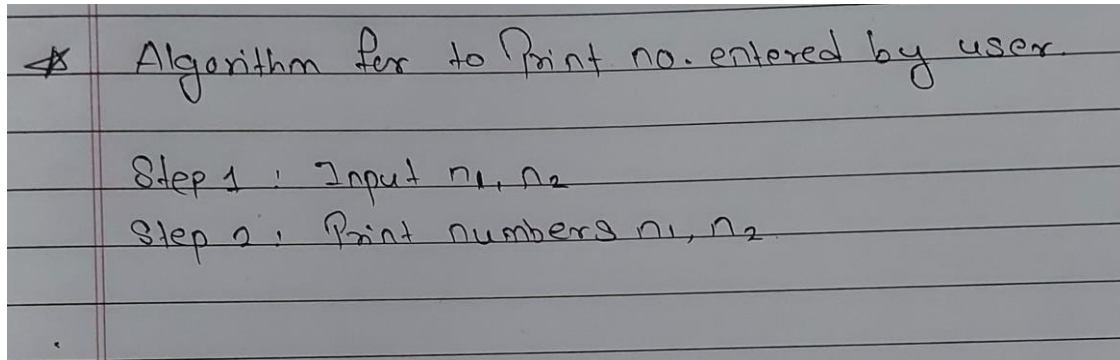 * Algorithm for to Print no. entered by user.
Step 1 : Input n1, n2
Step 2 : Print numbers n1, n2